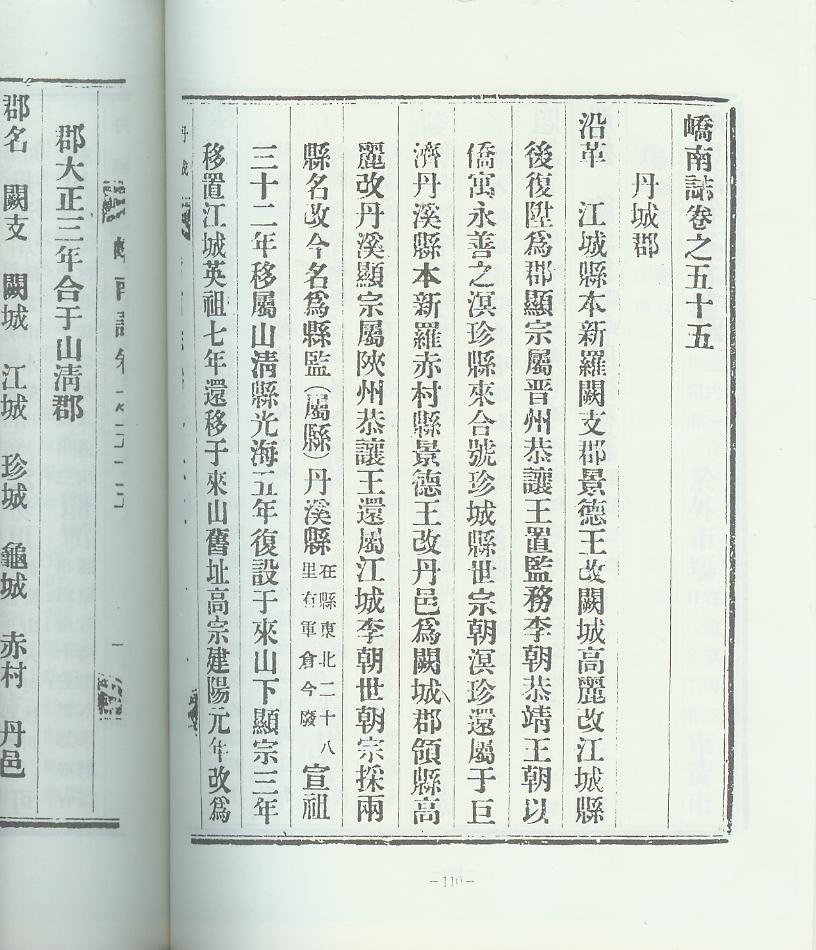 嶠南誌卷之五十五
丹城郡
沿革 江城縣本新羅闕支郡景德王改闕城高麗改江城縣
後復陞爲郡顯宗屬晋州恭讓王置監務李朝恭靖王朝以
僑寓永善之溟珍縣來合號珍城縣世宗朝溟珍還屬于巨
濟丹溪縣本新羅赤村縣景德王改丹邑爲闕城郡領縣高
麗改丹溪顯宗屬陜州恭讓王還屬江城李朝世朝宗採兩
縣名改今名爲縣監(屬縣)丹溪縣在縣東北二十八里有軍倉今廢宣祖
三十二年移屬山淸縣光海五年復設于來山下顯宗三年
移置江城英祖七年還移于來山舊址高宗建陽元年改爲
郡大正三年合于山淸郡
郡名 闕支 闕城 江城 珍城 龜城 赤村 丹邑
-110-